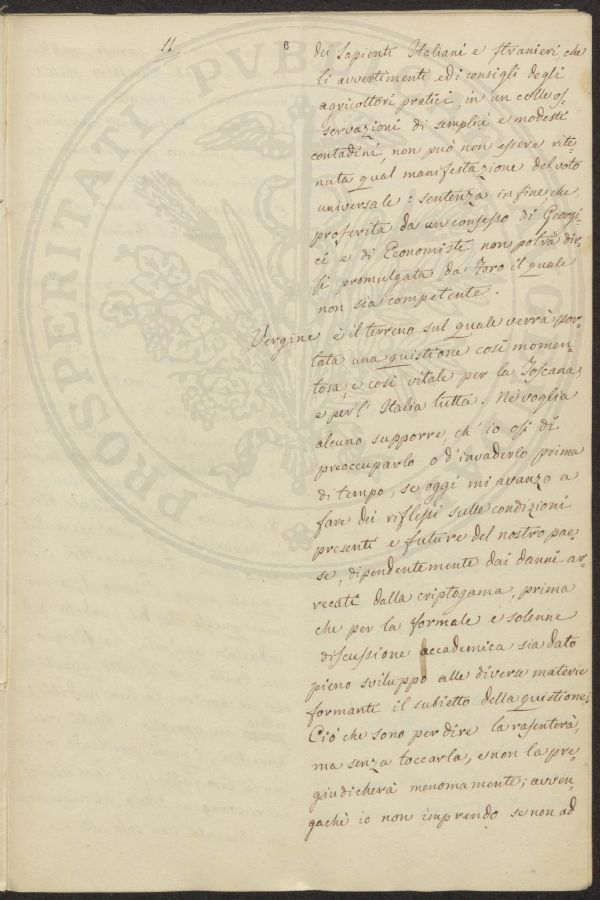 11
6
dei Sapienti Italiani e stranieri che
li avvertimenti ed i consigli degli
agricoltori pratici, in un colle os-
servazioni di semplici e modesti
contadini, non può non essere rite-
nuta qual manifestazione del voto
universale: sentenza infine che,
proferita da un consesso di Georgi-
ci e di Economisti non potrà dir-
si promulgata da Foro il quale
non sia competente.
Vergine è il terreno sul quale verrà por-
tata una quistione così momen-
tosa, e così vitale per la Toscana
e per l'Italia tutta. Nè voglia
alcuno supporre, ch'io osi di
preoccuparlo o d'invaderlo prima
di tempo, se oggi mi avanzo a
fare dei riflessi sulle condizioni
presenti e future del nostro pae-
se, dipendentemente dai danni ar-
recati dalla criptogama, prima
che per la formale e solenne
discussione accademica sia dato
pieno sviluppo alle diverse materie
formanti il subietto della quistione.
Ciò che sono per dire la rasenterà,
ma senza toccarla, e non la pre-
giudicherà menomamente; avven-
gachè io non imprendo se non ad
PROSPERITATI
PVBL